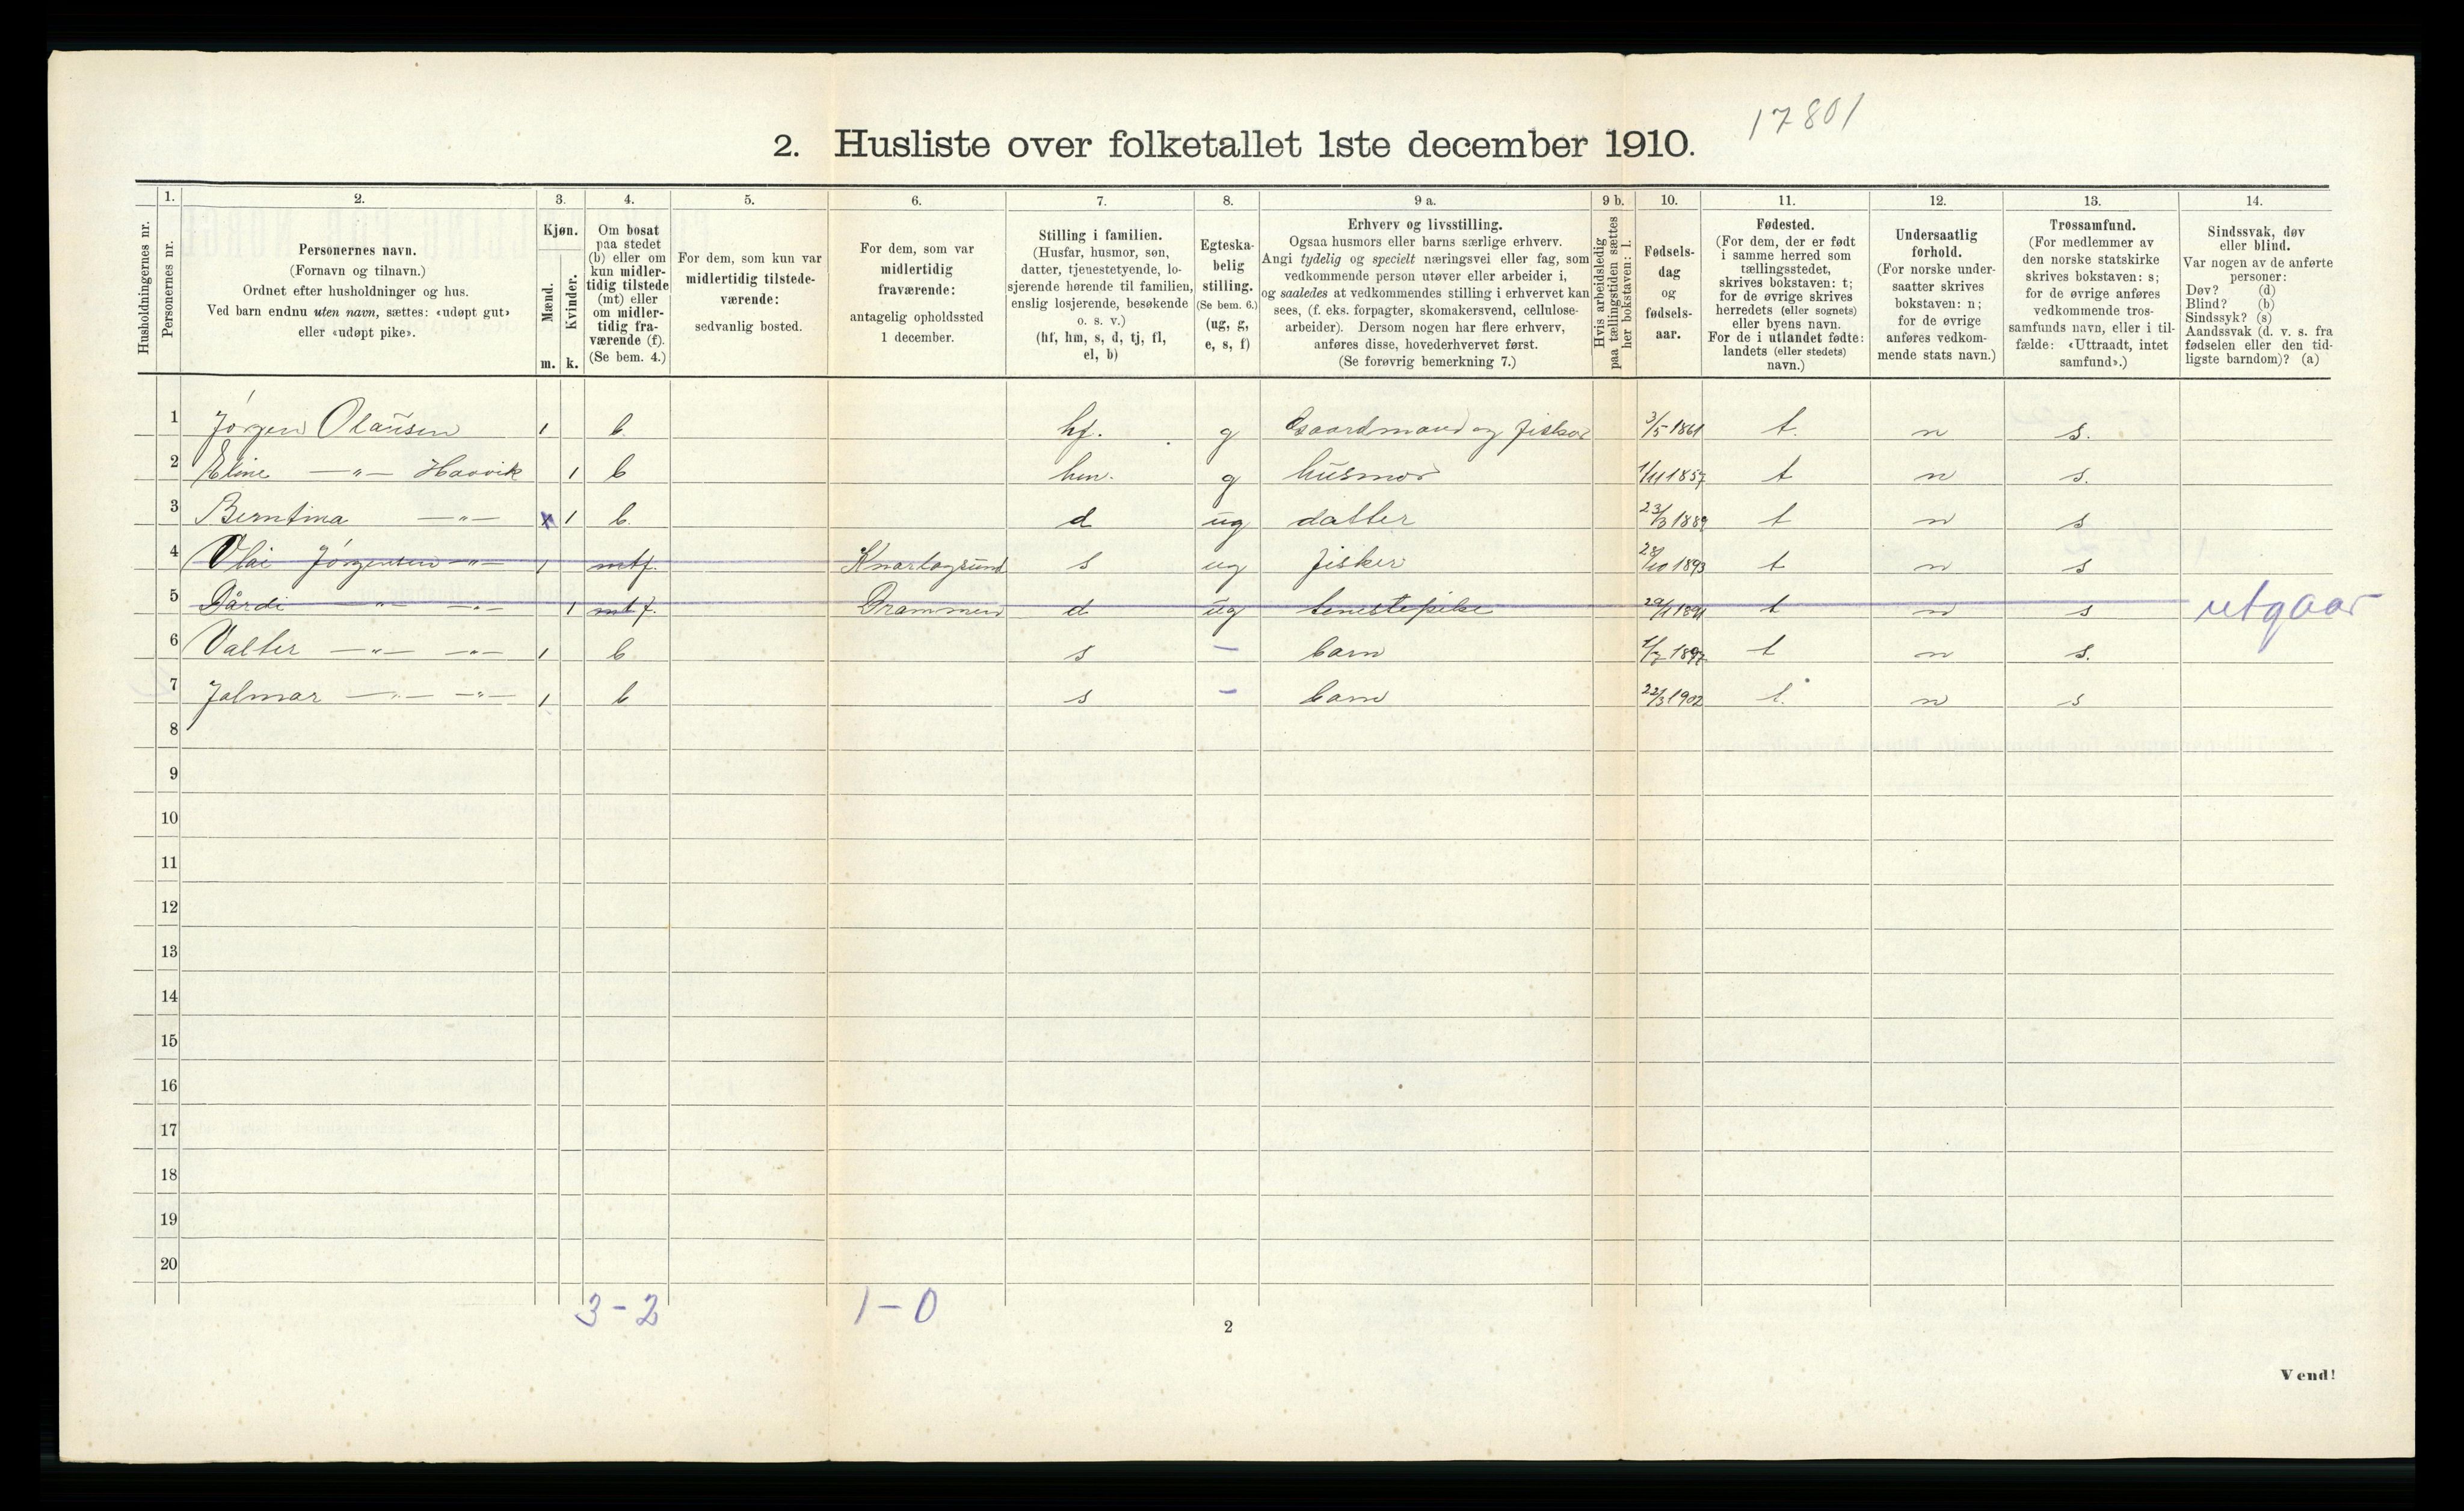 17801
2. Husliste over folketallet 1ste december 1910.
Husholdningernes nr.
1.
Personernes nr.
2.
Personernes navn.
(Fornavn og tilnavn.)
Ordnet efter husholdninger og hus.
Ved barn endnu uten navn, sættes: «udøpt gut»
eller «udøpt pike».
3.
Kjøn.
Mænd.
Kvinder.
m. k.
4.
Om bosat
paa stedet
(b) eller om
kun midler-
tidig tilstede
(mt) eller
om midler-
tidig fra-
værende (f).
(Se bem. 4.)
5.
For dem, som kun var
midlertidig tilstede-
værende:
sedvanlig bosted.
6.
For dem, som var
midlertidig
fraværende:
antagelig opholdssted
1 december.
7.
Stilling i familien.
(Husfar, husmor, søn,
datter, tjenestetyende, lo-
sjerende hørende til familien,
enslig losjerende, besøkende
o. s. v.)
(hf, hm, s, d, tj, fl,
el, b)
8.
Egteska-
belig
stilling.
(Se bem. 6.)
(ug, g,
e, s, f)
9 a.
Erhverv og livsstilling.
Ogsaa husmors eller barns særlige erhverv.
Angi tydelig og specielt næringsvei eller fag, som
vedkommende person utøver eller arbeider i,
og saaledes at vedkommendes stilling i erhvervet kan
sees, (f. eks. forpagter, skomakersvend, cellulose-
arbeider). Dersom nogen har flere erhverv,
anføres disse, hovederhvervet først.
(Se forøvrig bemerkning 7.)
9 b.
Hvis arbeidsledig
paa tællingstiden sættes
her bokstaven: l.
10.
Fødsels-
dag
og
fødsels-
aar.
11.
Fødested.
(For dem, der er født
i samme herred som
tællingsstedet,
skrives bokstaven: t;
for de øvrige skrives
herredets (eller sognets)
eller byens navn.
For de i utlandet fødte:
landets (eller stedets)
navn.)
12.
Undersaatlig
forhold.
(For norske under-
saatter skrives
bokstaven: n;
for de øvrige
anføres vedkom-
mende stats navn.)
13.
Trossamfund.
(For medlemmer av
den norske statskirke
skrives bokstaven: s;
for de øvrige anføres
vedkommende tros-
samfunds navn, eller i til-
fælde: «Uttraadt, intet
samfund».)
14.
Sindssvak, døv
eller blind.
Var nogen av de anførte
personer:
Døv? (d)
Blind? (b)
Sindssyk? (s)
Aandssvak (d. v. s. fra
fødselen eller den tid-
ligste barndom)? (a)
1 Jørgen Olausen 1 b. hf. g Gaardmand og fisker 3/5 1861 t. n s.
2 Eline —"— Haavik 1 b hm. g husmor 1/11 1857 t n s.
3 Berntina —"— x 1 b. d ug datter 23/3 1889 t n s
4 Olai Jørgensen —"— 1 mtf. Knarlagsund s ug fisker 28/10 1893 t n s
5 Dårdi —"— —"— 1 mtf. Drammen d ug tenestepike 29/1 1891 t n s utgaar
6 Valter —"— —"— 1 b s — barn 1/7 1897 t n s.
7 Jalmar —"— —"— 1 b s — barn 22/3 1902 t. n s
8
9
10
11
12
13
14
15
16
17
18
19
20
3-2 1-0
2
Vend!